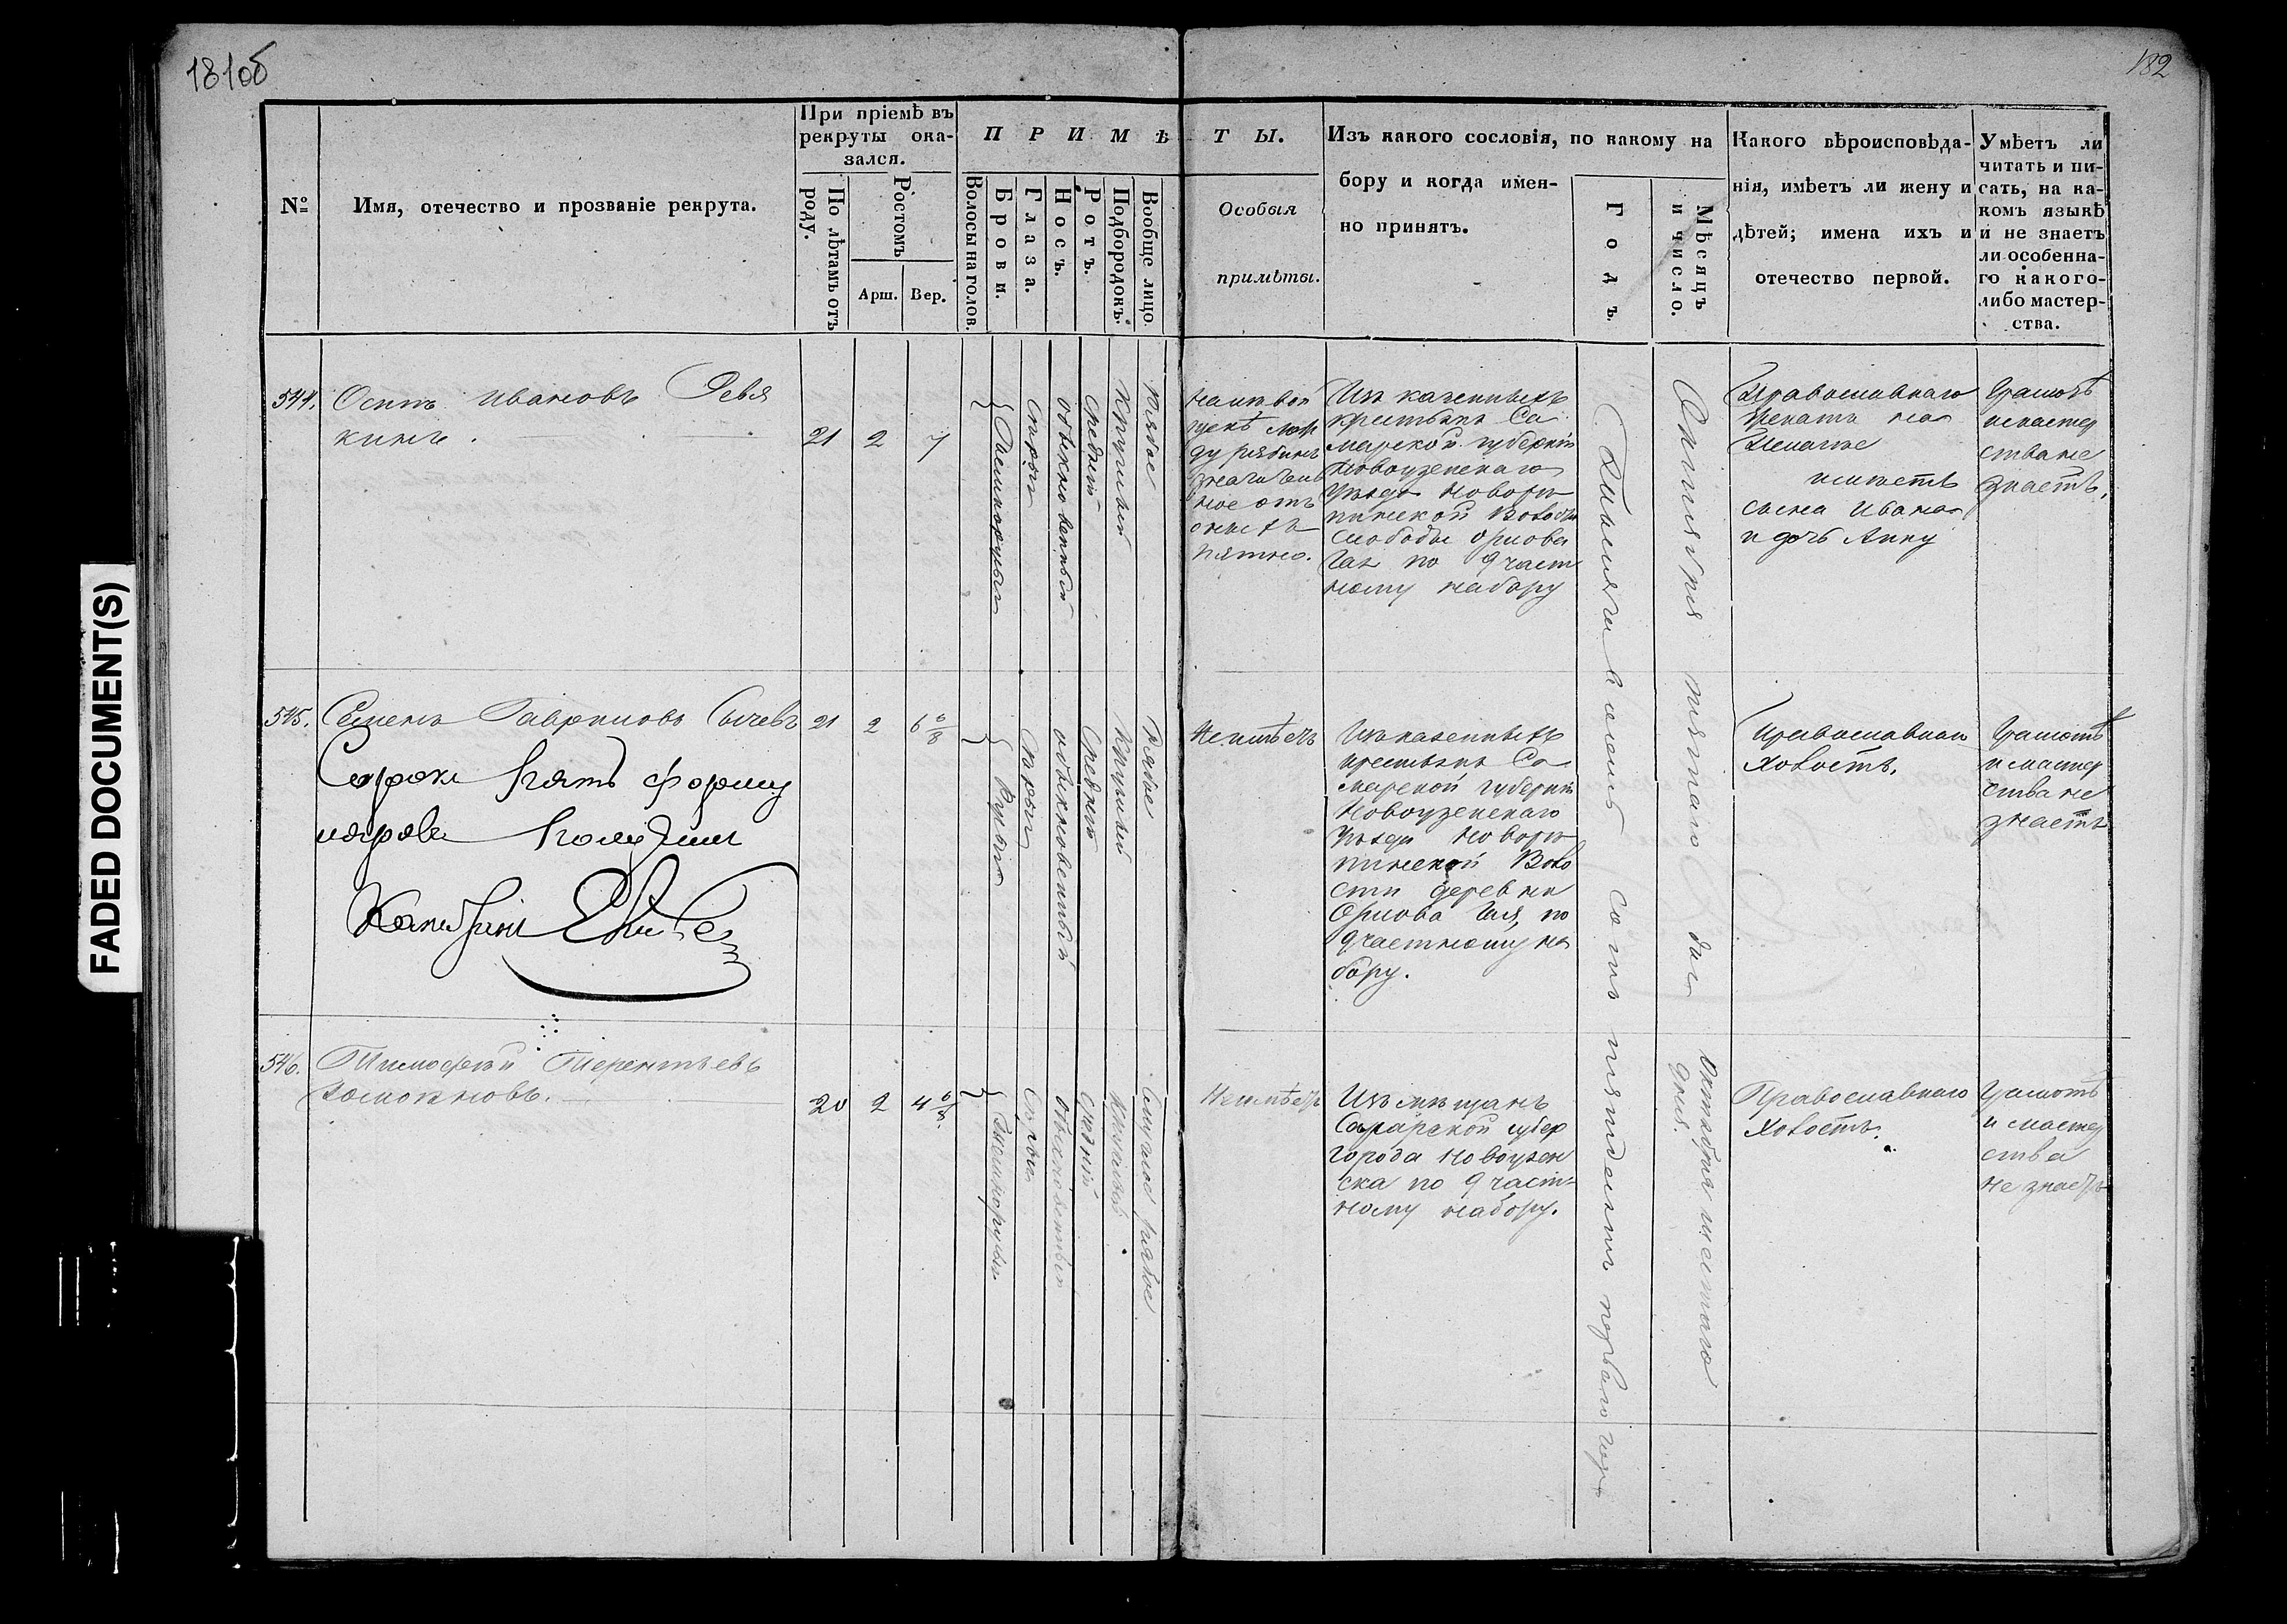 181об
182
FADED DOCUMENT(S)
№
Имя, отечество и прозваніе рекрута.
При пріемѣ въ
рекруты ока-
зался.
По лѣтамъ отъ
роду.
Ростомъ
Арш.
Вер.
ПРИМѢТЫ.
Волосы на голов.
Брови.
Глаза.
Носъ.
Ротъ.
Подбородокъ.
Вообще лицо.
Особыя
примѣты.
Изъ какого сословія, по какому на
бору и когда имен-
но принятъ.
Годъ.
Мѣсяцъ
и число.
Какого вѣроисповѣда-
нія, имѣетъ ли жену и
дѣтей; имена ихъ и
отечество первой.
Умѣетъ ли
читать и пи-
сать, на ка-
комъ языкѣ
и не знаетъ
ли особенна-
го какого-
либо мастер-
ства.
544.
Осипъ Ивановъ Ревя
кинъ.
21
2
7
Темнорусыя
Сѣрыя
обыкновенный
средній
круглый
Рябое
Изъ казенныхъ
крестьянъ Са
марской губерніи
Новоузенскаго
уѣзда Новорѣ
пинской Волости
Слободы Орлова
Гая по 9 част
ному набору
Тысяча восемь сотъ пятьдесятъ перваго года
Октября пятаго дня
Православнаго
Женатъ на
имѣетъ
сына Ивана
и дочь Анну
Грамотѣ
и мастер
ства не
знаетъ.
545.
Семенъ Гавриловъ Сычевъ
21
2
6 6/8
Русыя
Сѣрыя
обыкновенный
Средній
Круглый
Рябое
Неимѣетъ
Изъ казенныхъ
крестьянъ Са
марской губерніи
Новоузенскаго
уѣзда Новорѣ
пинской Воло
сти деревни
Орлова Гая, по
9 частному на
бору.
Православнаго
Холостъ.
Грамотѣ
и мастер
ства не
знаетъ
Сорокъ пять форму
ляровъ получилъ
546.
Тимофѣй Терентьевъ
20
2
4 6/8
Темнорусыя
Сѣрыя
обыкновенный
Средній
Круглый
Смуглое рябое
Неимѣетъ
Изъ мѣщанъ
Самарской губер
города Новоузен
ска по 9 част-
ному набору.
Октября шестаго
дня.
Православнаго
Холостъ.
Грамотѣ
и мастер
ства
не знаетъ